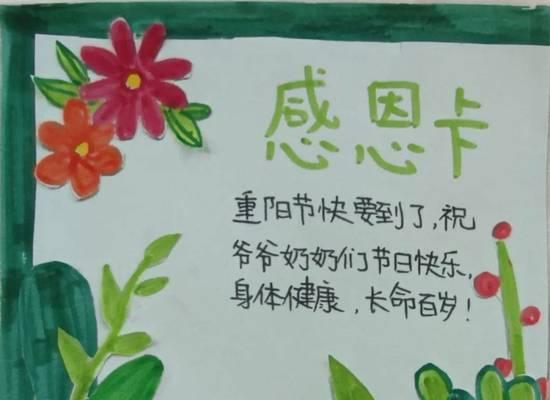 感恩卡
重阳节快要到了,祝
爷爷奶奶们节日快乐,
身体健康,长命百岁!